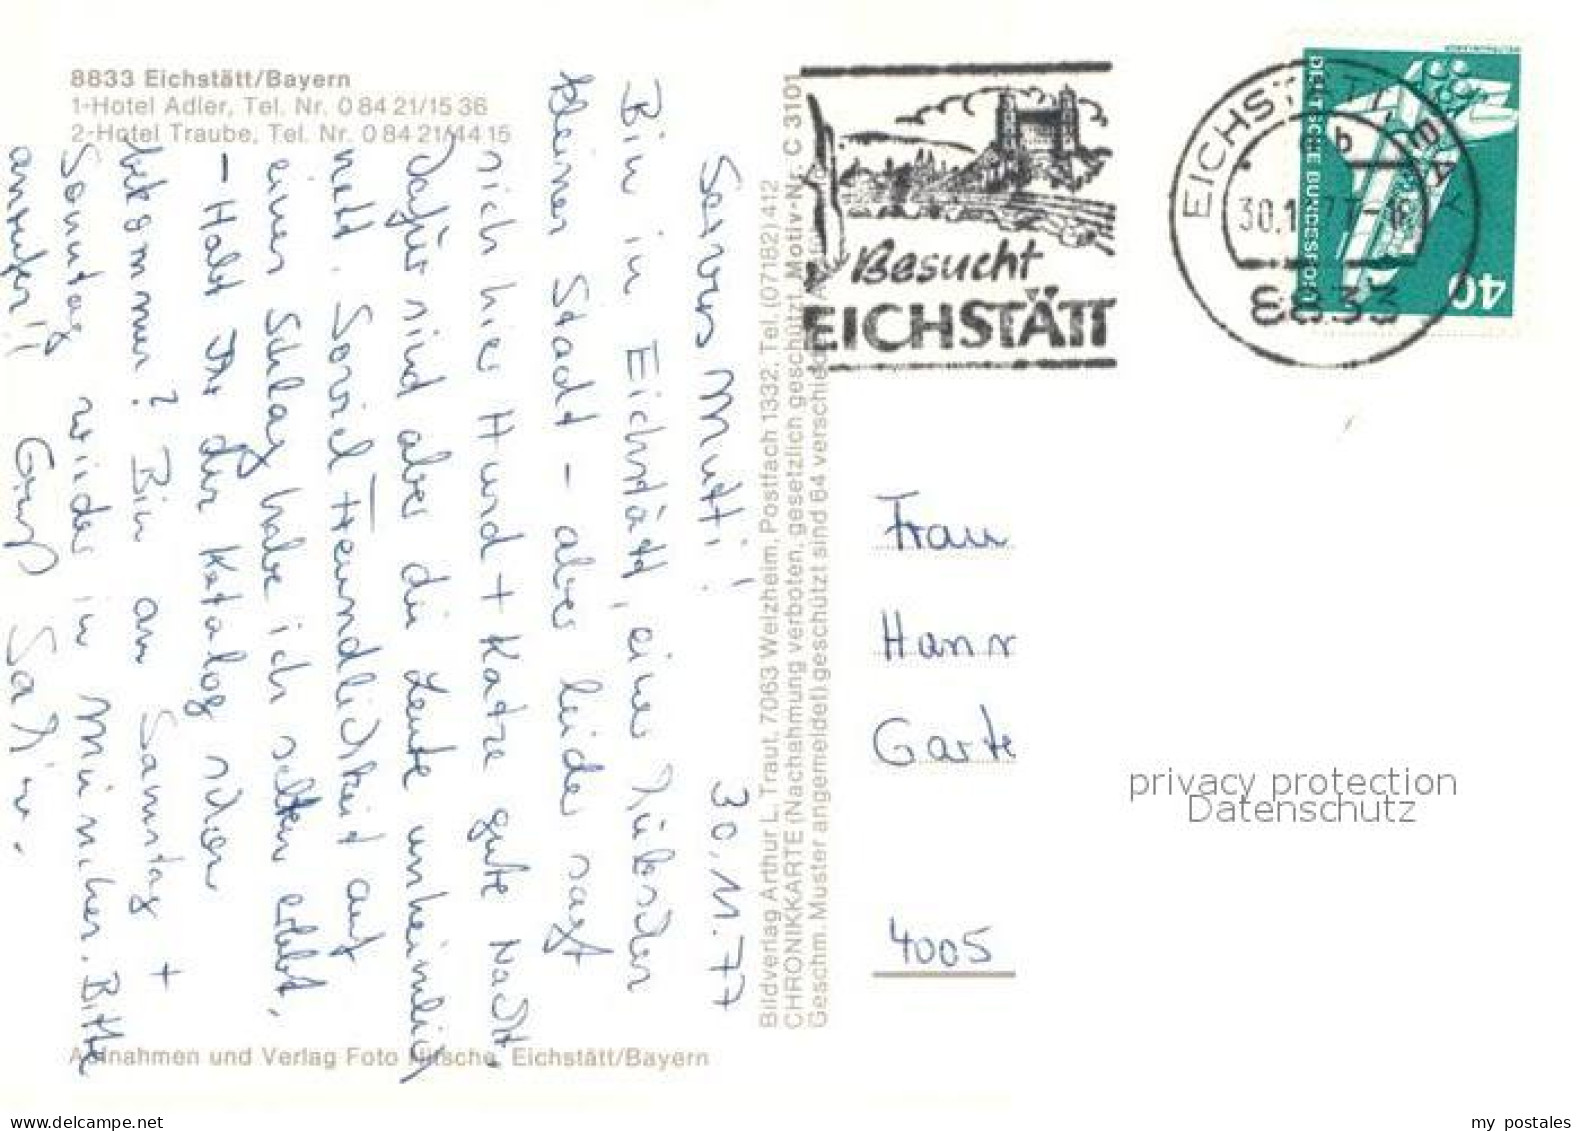 8833 Eichstätt/Bayern
1-Hotel Adler, Tel. Nr. 0 84 21/15 36
2-Hotel Traube, Tel. Nr. 0 84 21/44 15
30.11.77
Servus Mutti!
Bin in Eichstätt, einer hübschen
kleinen Stadt – aber leider sagt
sich hier Hund + Katze gute Nacht.
Dafür sind aber die Leute unheimlich
nett. Soviel Freundlichkeit auf
einen Schlag habe ich selten erlebt.
– Habt Ihr den Katalog schon
bekommen? Bin am Samstag +
Sonntag wieder in München. Bitte
anrufen!! Gruß
Aufnahmen und Verlag Foto Nitsche, Eichstätt/Bayern
Bildverlag Arthur L. Traut, 7063 Welzheim, Postfach 1332, Tel. (07182) 412
CHRONIKKARTE (Nachahmung verboten, gesetzlich geschützt Motiv-Nr. C 3101
Geschm. Muster angemeldet) geschützt sind 64 verschied
Besucht
EICHSTÄTT
EICHSTÄTT, BAY
b
30.1 77-18
8833
DEUTSCHE BUNDESPOST
40
Frau
Hann
Garte
4005
privacy protection
Datenschutz
my postales